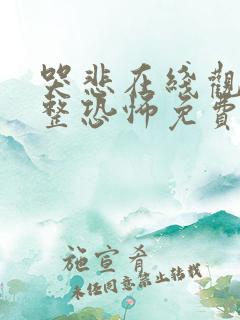 哭悲在线觀
整恐怖免費
施宣肴
未任同意禁止转载